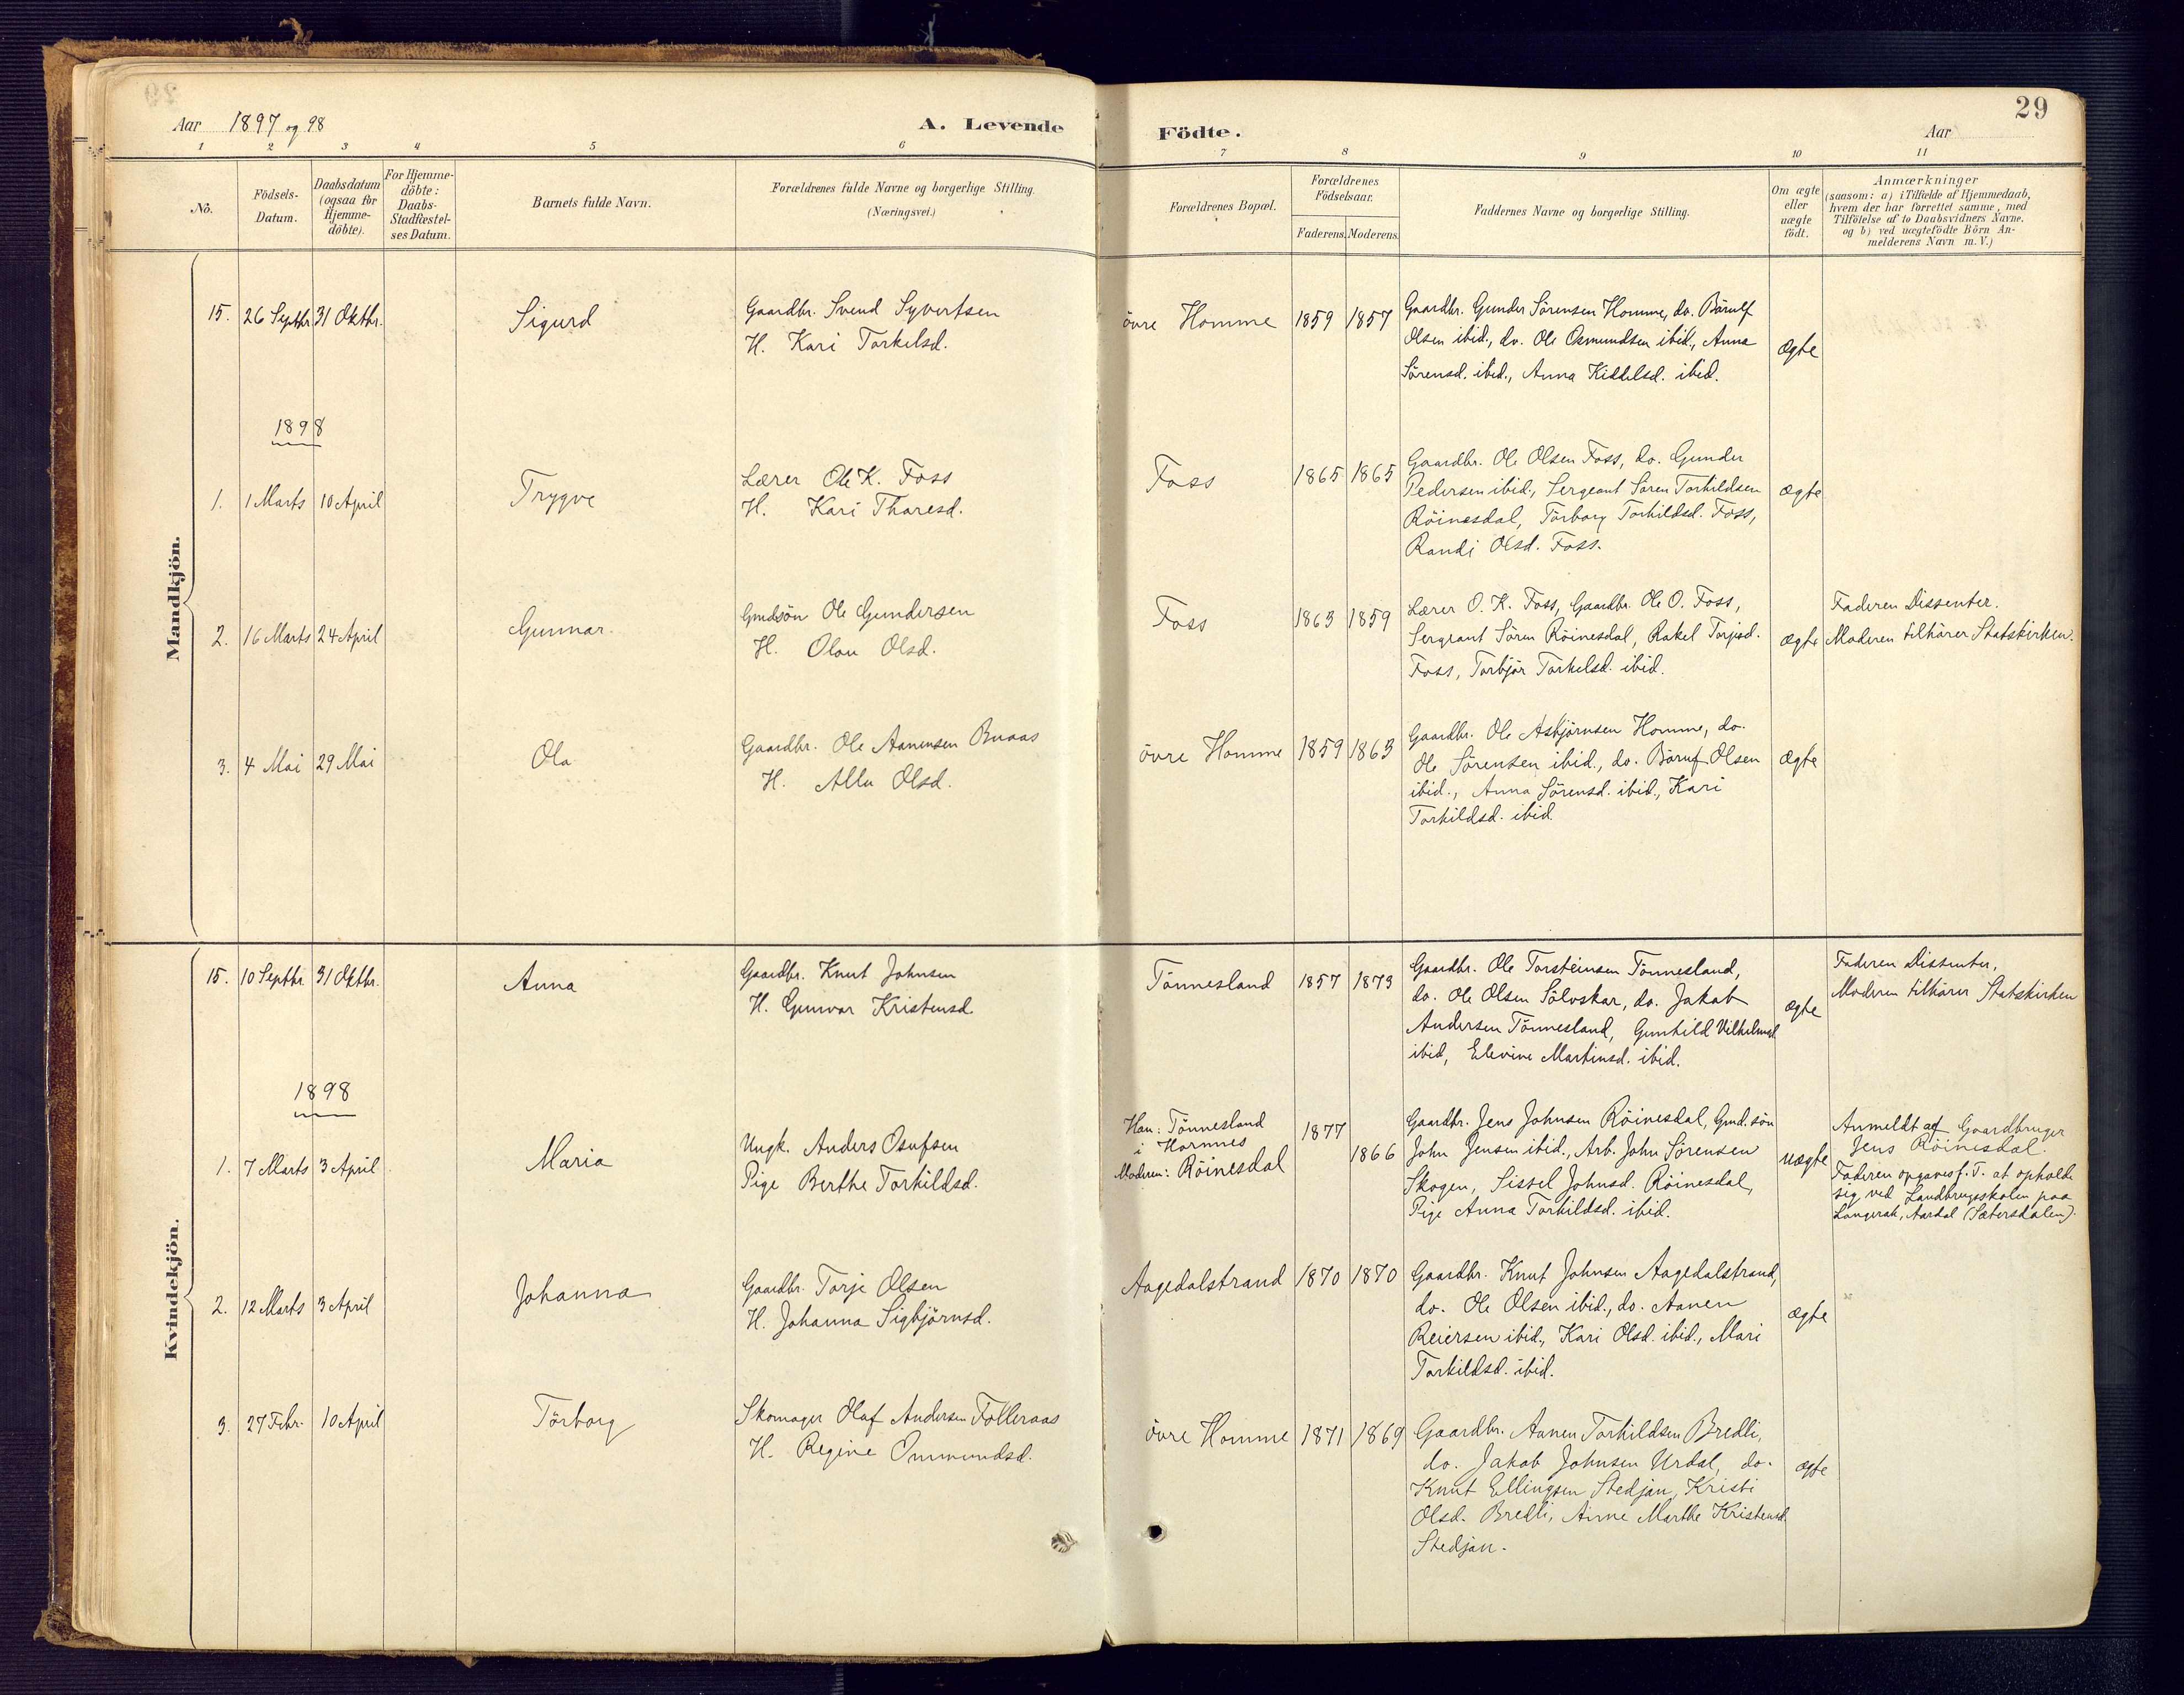 29
Aar 1897 og 98
A. Levende Födte.
Aar
1 2 3 4 5 6 7 8 9 10 11
No.
Födsels-
Datum.
Daabsdatum
(ogsaa for
Hjemme-
döbte).
For Hjemme-
döbte:
Daabs-
Stadfæstel-
ses Datum.
Barnets fulde Navn.
Forældrenes fulde Navne og borgerlige Stilling.
(Næringsvei.)
Forældrenes Bopæl.
Forældrenes
Födselsaar.
Faderens. Moderens.
Faddernes Navne og borgerlige Stilling.
Om ægte
eller
uægte
födt.
Anmærkninger
(saasom: a) i Tilfælde af Hjemmedaab,
hvem der har forrettet samme, med
Tilföielse af to Daabsvidners Navne.
og b) ved uægtefödte Börn An-
melderens Navn m. V.)
Mandkjön.
15. 26 Septbr. 31 Oktbr.
Sigurd
Gaardbr. Svend Syvertsen
H. Kari Torkelsd.
övre Homme
1859 1857
Gaardbr. Gunder Sörensen Homme, do. Börulf
Olsen ibid., do. Ole Osmundsen ibid., Anna
Sörensd. ibid., Anna Kittelsd. ibid.
ægte
1898
1. 1 Marts 10 April
Trygve
Lærer Ole K. Foss
H. Kari Tharesd.
Foss
1865 1865
Gaardbr. Ole Olsen Foss, do. Gunder
Pedersen ibid., Sergeant Sören Torkildsen
Röinesdal, Törborg Torkildsd. Foss,
Randi Olsd. Foss.
ægte
2. 16 Marts 24 April
Gunnar.
Gmdsön Ole Gundersen
H. Olau Olsd.
Foss
1863 1859
Lærer O. K. Foss, Gaardbr. Ole O. Foss,
Sergeant Sören Röinesdal, Rakel Torjsd.
Foss, Torbjör Torkelsd. ibid.
ægte
Faderen Dissenter.
Moderen tilhörer Statskirken.
3. 4 Mai 29 Mai
Ola
Gaardbr. Ole Aanensen Bruaas
H. Allu Olsd.
övre Homme
1859 1863
Gaardbr. Ole Asbjörnsen Homme, do.
Ole Sörensen ibid., do. Böruf Olsen
ibid., Anna Sörensd. ibid., Kari
Torkildsd. ibid.
ægte
Kvindekjön.
15. 10 Septbr. 31 Oktbr.
Anna
Gaardbr. Knut Johnsen
H. Gunvor Kristensd.
Tönnesland
1857 1873
Gaardbr. Ole Torsteinsen Tönnesland,
do. Ole Olsen Sölvskar, do. Jakob
Andersen Tönnesland, Gunhild Vilhelmsd.
ibid, Elevine Martinsd. ibid.
ægte
Faderen Dissenter,
Moderen tilhörer Statskirken
1898
1. 7 Marts 3 April
Maria
Ungk. Anders Osufsen
Pige Berthe Torkildsd.
Han: Tönnesland
i Hornnes
Moderen: Röinesdal
1877
1866
Gaardbr. Jens Johnsen Röinesdal, Gmd.sön
John Jensen ibid., Arb. John Sörensen
Skogen, Sissel Johnsd. Röinesdal,
Pige Anna Torkildsd. ibid.
uægte
Anmeldt af Gaardbruger
Jens Röinesdal.
Faderen opgaves f. T. at opholde
sig ved Landbrugsskolen paa
Langerak, Aardal (Sætersdalen).
2. 12 Marts 3 April
Johanna
Gaardbr. Torje Olsen
H. Johanna Sigbjörnsd.
Aagedalstrand
1870 1870
Gaardbr. Knut Johnsen Aagedalstrand,
do. Ole Olsen ibid., do. Aanen
Reiersen ibid., Kari Olsd. ibid., Mari
Torkildsd. ibid.
ægte
3. 27 Febr. 10 April
Törborg
Skomager Olaf Andersen Folleraas
H. Regine Ommundsd.
övre Homme
1871 1869
Gaardbr. Aanen Torkildsen Bredli,
do. Jakob Johnsen Urdal, do.
Knut Ellingsen Stedjan, Kristi
Olsd. Bredli, Anne Marthe Kristensd.
Stedjan.
ægte